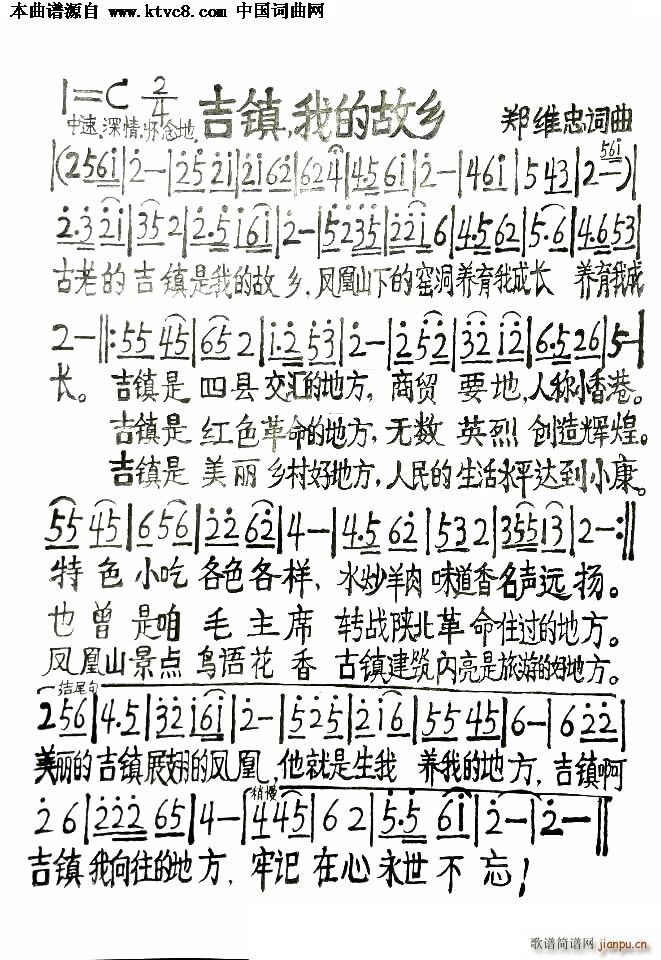 本曲谱源自 www.ktvc8.com 中国词曲网
1=C 2/4 吉镇,我的故乡 郑维忠词曲
中速.深情.怀念地.
|(2 5 6 i|2 -|2 5 2 i|2 i 6 2|6 2 4|4 5 6 i|2 -|4 6 i|5 4 3|2 -)|
5 6 i
2·3 2 i|3 5 2|2·5 i 6 i|2 -|5 2 3 5|2 2 i 6|4·5 6 2|5·6|4·6 5 3|
古老的吉镇是我的故乡,凤凰山下的窑洞养育我成长 养育我成
2 -‖:5 5 4 5|6 5 2|i·2 5 3|2 -|2 5 2|3 2 i 2|6·5 2 6|5 -|
长。 吉镇是 四县交汇的地方,商贸 要地,人称小香港。
吉镇是 红色革命的地方,无数 英烈 创造辉煌。
吉镇是 美丽乡村好地方,人民的生活水平达到小康。
5 5 4 5|6 5 6|2 2 6 2|4 -|4·5 6 2|5 3 2|3 5 5 i 3|2 -:‖
特色小吃各色各样,水炒羊肉味道香名声远扬。
也曾是咱毛主席 转战陕北革命住过的地方。
凤凰山景点鸟语花香 古镇建筑闪亮是旅游的好地方。
结尾句
2 5 6|4·5|3 2 i 6 i|2 -|5 2 5|2 i 6|5 5 4 5|6 -|6 2 2|
美丽的吉镇展翅的凤凰,他就是生我 养我的地方,吉镇啊
稍慢
2 6|2 2 2 6 5|4 -|4 4 5|6 2|5·5 6 i|2 -|2 -‖
吉镇我向往的地方,牢记在心永世不忘!
歌谱简谱网
jianpu.cn